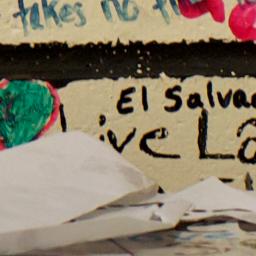 takes no
El Salva
ive La